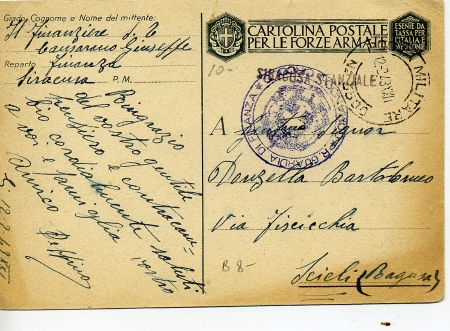 Grado, Cognome e Nome del mittente:
Il finanziere
Canzarano Giuseppe
Reparto finanza
Siracusa P. M.
Ringrazio
del vostro gentile
pensiero e contracam-
bio cordialmente saluti
a voi e famiglia
vostro
Amico Peppino
CARTOLINA POSTALE
PER LE FORZE ARMATE
ESENTE DA
TASSA PER
L'ITALIA E
10-
SIRACUSA STANZIALE
MILITARE
GUARDIA DI FINANZA
A Signor
Donzella Bartolomeo
Via
B 8-
Scicli (Ragusa)